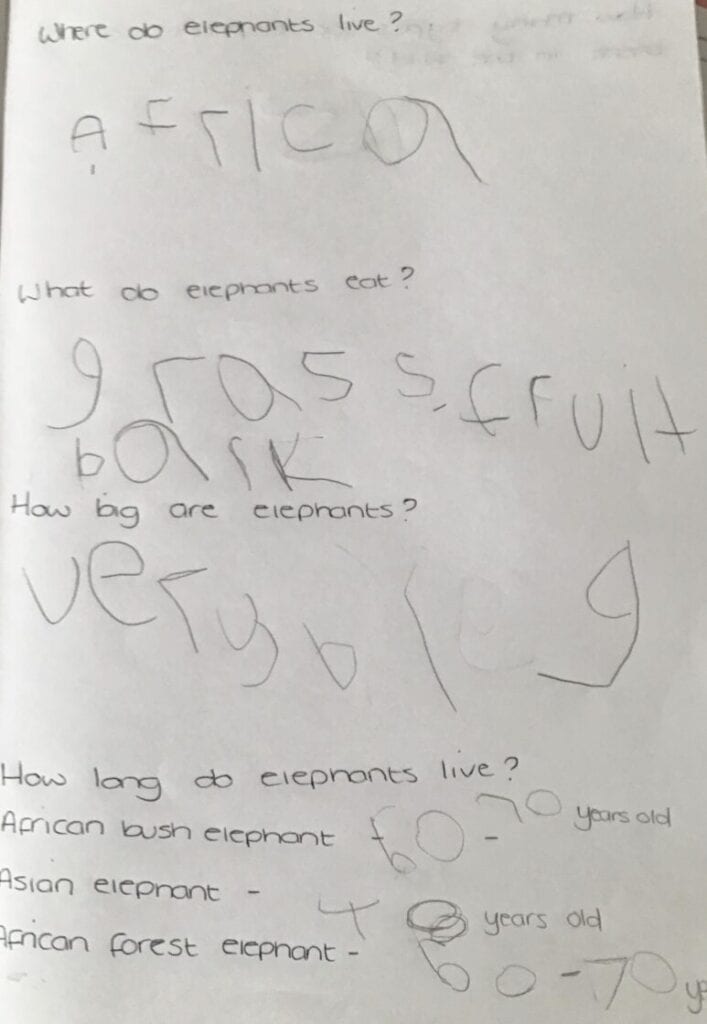 Where do elephants live?
Africa
What do elephants eat?
grass, fruit
bark
How big are elephants?
very big
How long do elephants live?
African bush elephant 60-70 years old
Asian elephant -
40 years old
African forest elephant - 60-70 y